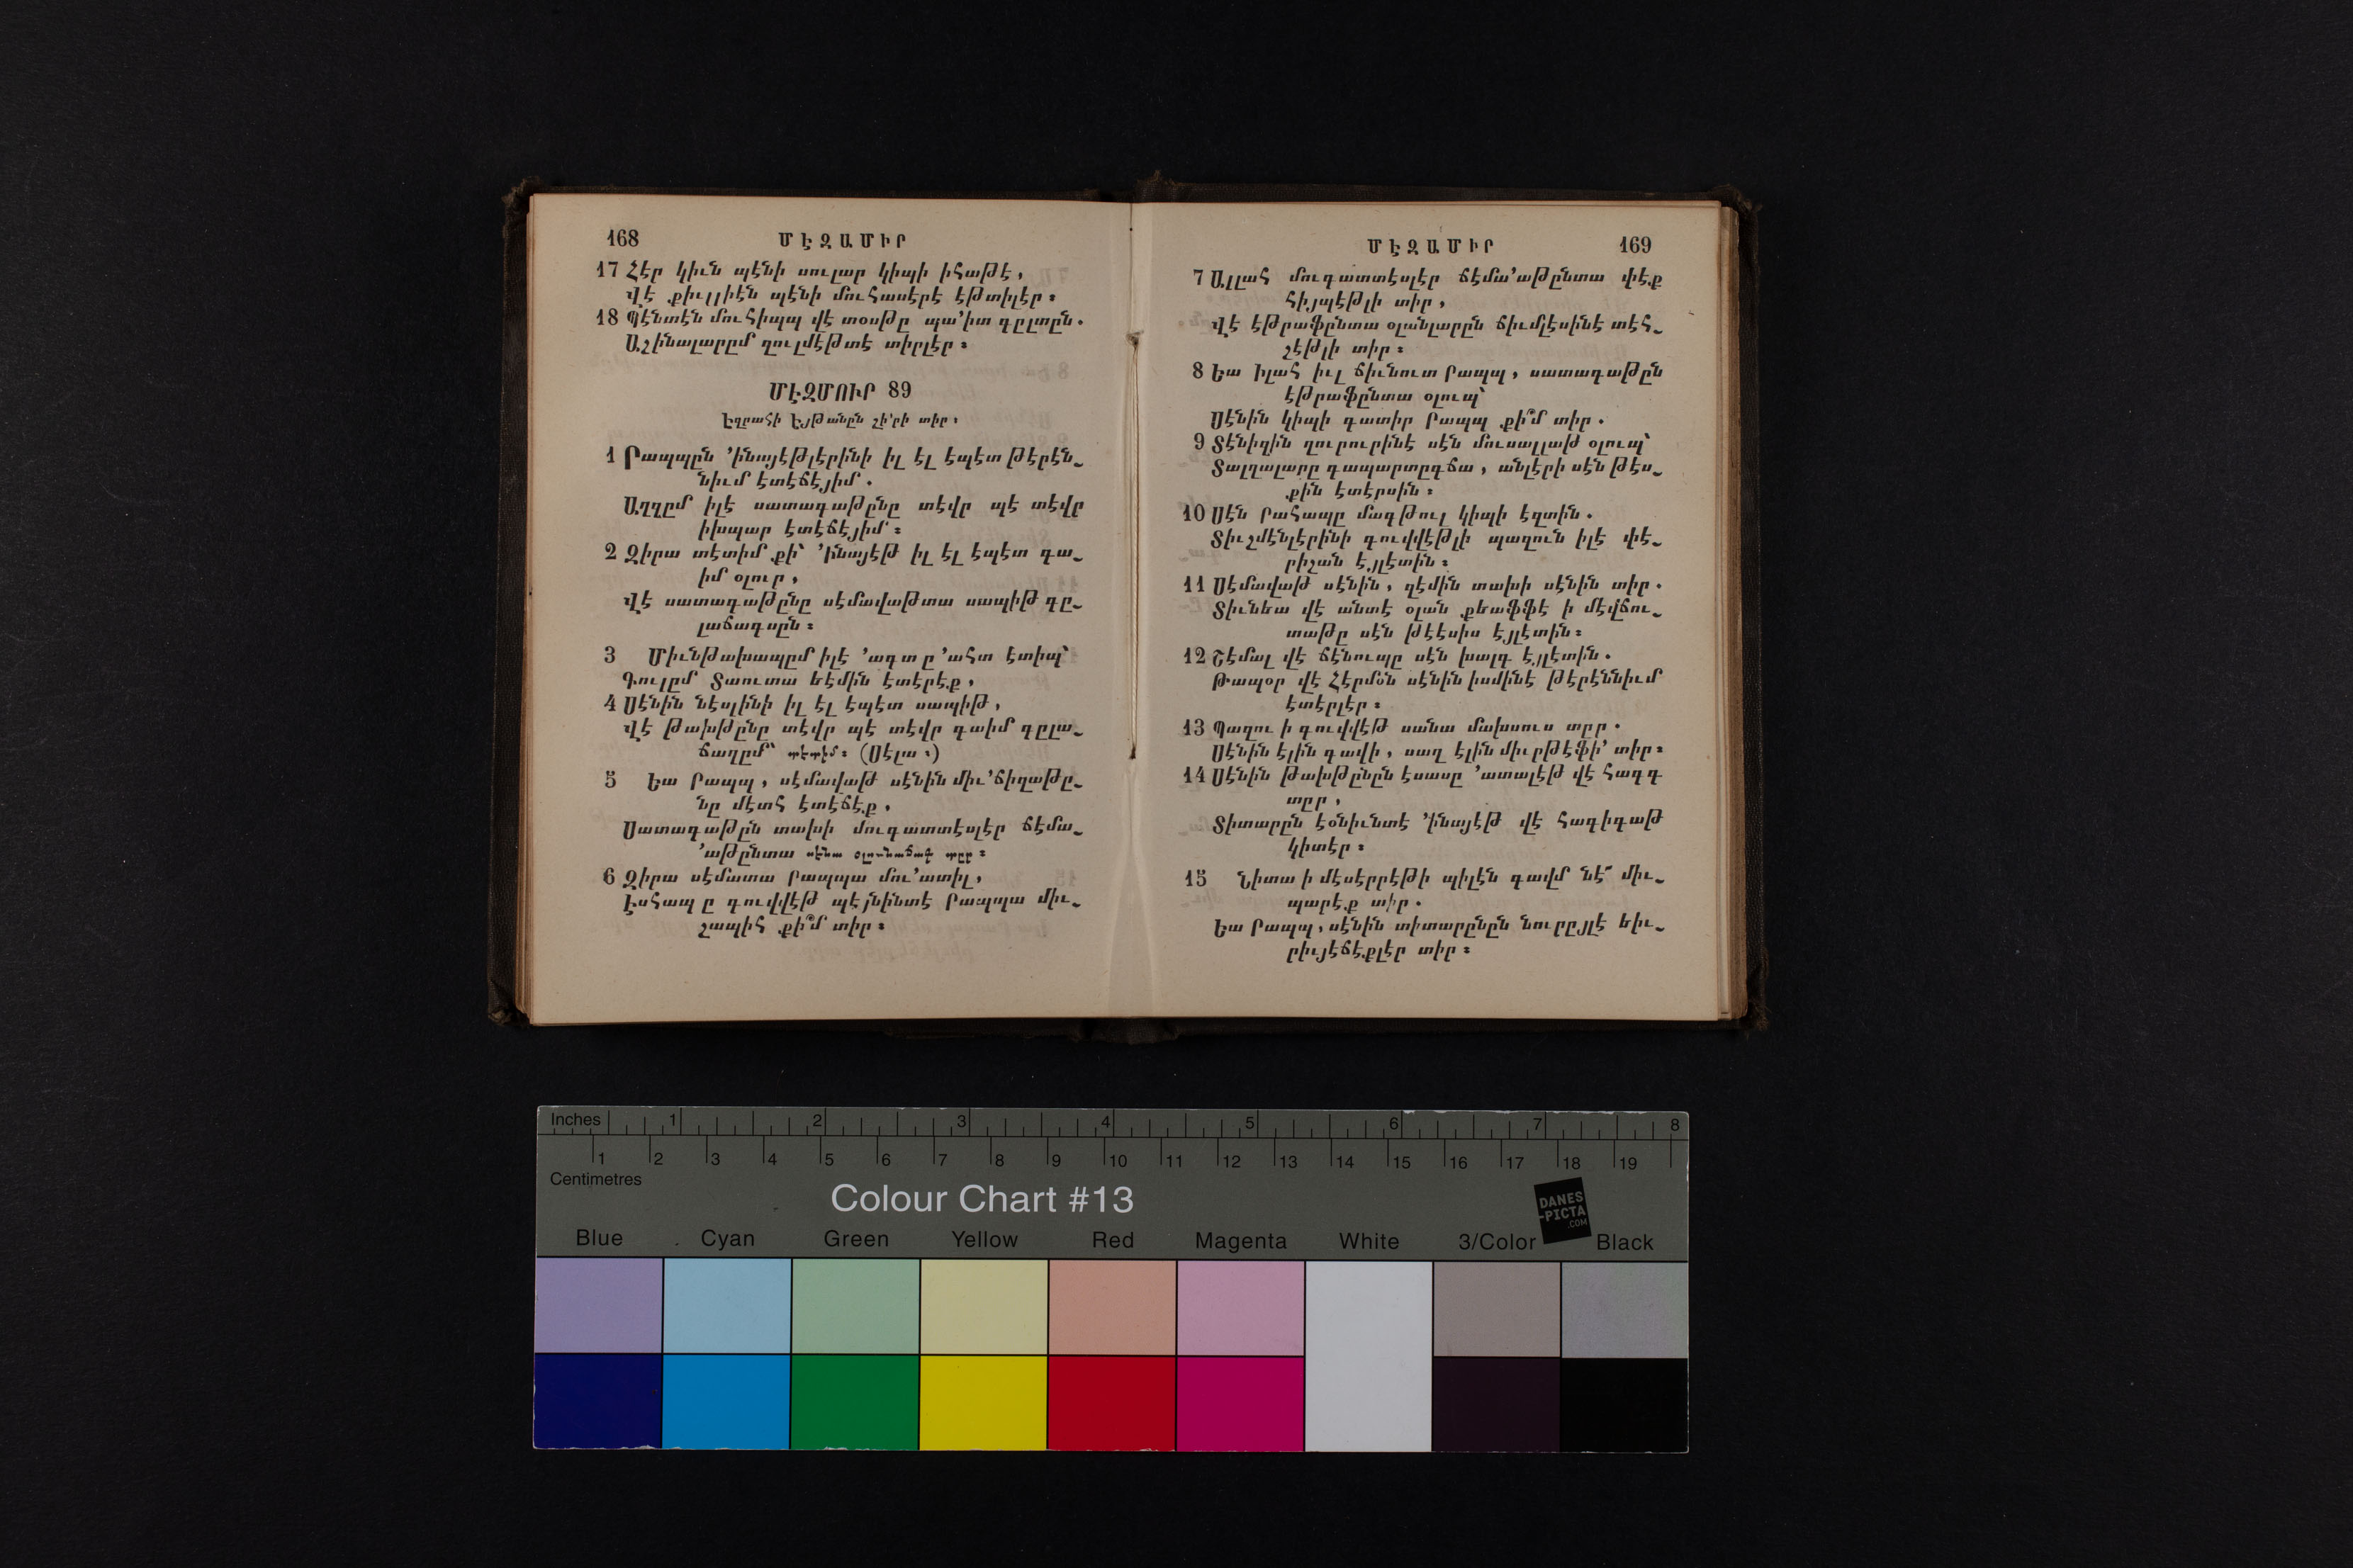 168 ՄԷԶԱՄԻՐ
17 Հէր կիւն պէնի սուլար կիպի իհաթէ,
Վէ քիւլլիէն պէնի մուհասէրէ էթտիլէր։
18 Պէնտէն մուհիպպ վէ տօսթը պա՚իտ գըլտըն.
Աշինալարըմ զուլմէթտէ տիրլէր։
ՄԷԶՄՈՒՐ 89
Էզրահի Էյթանըն շի՚րի տիր.
1 Րապպըն ՚ինայէթլէրինի իլ էլ էպէտ թէրէն֊
նիւմ էտէճէյիմ.
Աղզըմ իլէ սատագաթընը տէվր պէ տէվր
իխպար էտէճէյիմ։
2 Զիրա տէտիմ քի՝ ՚ինայէթ իլ էլ էպէտ գա֊
իմ օլուր,
Վէ սատագաթընը սէմավաթտա սապիթ գը֊
լաճագսըն։
3 Միւնթախապըմ իլէ ՚ագտ ը ՚ահտ էտիպ՝
Գուլըմ Տաուտա եէմին էտէրէք,
4 Սէնին նէսլինի իլ էլ էպէտ սապիթ,
Վէ թախթընը տէվր պէ տէվր գաիմ գըլա֊
ճաղըմ՝ տէտիմ։ (Սէլա։)
5 Եա Րապպ, սէմավաթ սէնին միւ՚ճիզաթը֊
նը մէտհ էտէճէք,
Սատագաթըն տախի մուգատտէսլէր ճէմա֊
՚աթընտա սէնա օլունաճագ տըր։
6 Զիրա սէմատա Րապպա մու՚ատիլ,
Էսհապ ը գուվվէթ պէյնինտէ Րապպա միւ֊
շապիհ քի՞մ տիր։
ՄԷԶԱՄԻՐ 169
7 Ալլահ մուգատտէսլէր ճէմա՚աթընտա փէք
հիյպէթլի տիր,
Վէ էթրաֆընտա օլանլարըն ճիւմլէսինէ տէհ֊
շէթլի տիր։
8 Եա Իլահ իւլ ճիւնուտ Րապպ, սատագաթըն
էթրաֆընտա օլուպ՝
Սէնին կիպի գատիր Րապպ քի՞մ տիր.
9 Տէնիզին ղուրուրինէ սէն մուսալլաթ օլուպ՝
Տալղալարը գապարտըգճա, անլէրի սէն թէս֊
քին էտէրսին։
10 Սէն Րահապը մագթուլ կիպի էզտին.
Տիւշմէնլէրինի գուվվէթլի պաղուն իլէ փէ֊
րիշան էյլէտին։
11 Սէմավաթ սէնին, զէմին տախի սէնին տիր.
Տիւնեա վէ անտէ օլան քեաֆֆէ ի մէվճու֊
տաթը սէն թէէսիս էյլէտին։
12 Շէմալ վէ ճէնուպը սէն խալգ էյլէտին.
Թապօր վէ Հէրմօն սէնին իսմինէ թէրէննիւմ
էտէրլէր։
13 Պաղու ի գուվվէթ սանա մախսուս տըր.
Սէնին էլին գավի, սաղ էլին միւրթէֆի՚ տիր։
14 Սէնին թախթընըն էսասը ՚ատալէթ վէ հագգ
տըր,
Տիտարըն էօնիւնտէ ՚ինայէթ վէ հագիգաթ
կիտէր։
15 Նիտա ի մէսէրրէթի պիլէն գավմ նէ՜ միւ֊
պարէք տիր.
Եա Րապպ, սէնին տիտարընըն նուրըյլէ եիւ֊
րիւյէճէքլէր տիր։
Inches 1 2 3 4 5 6 7 8
1 2 3 4 5 6 7 8 9 10 11 12 13 14 15 16 17 18 19
Centimetres
Colour Chart #13
DANES
-PICTA
.COM
Blue Cyan Green Yellow Red Magenta White 3/Color Black